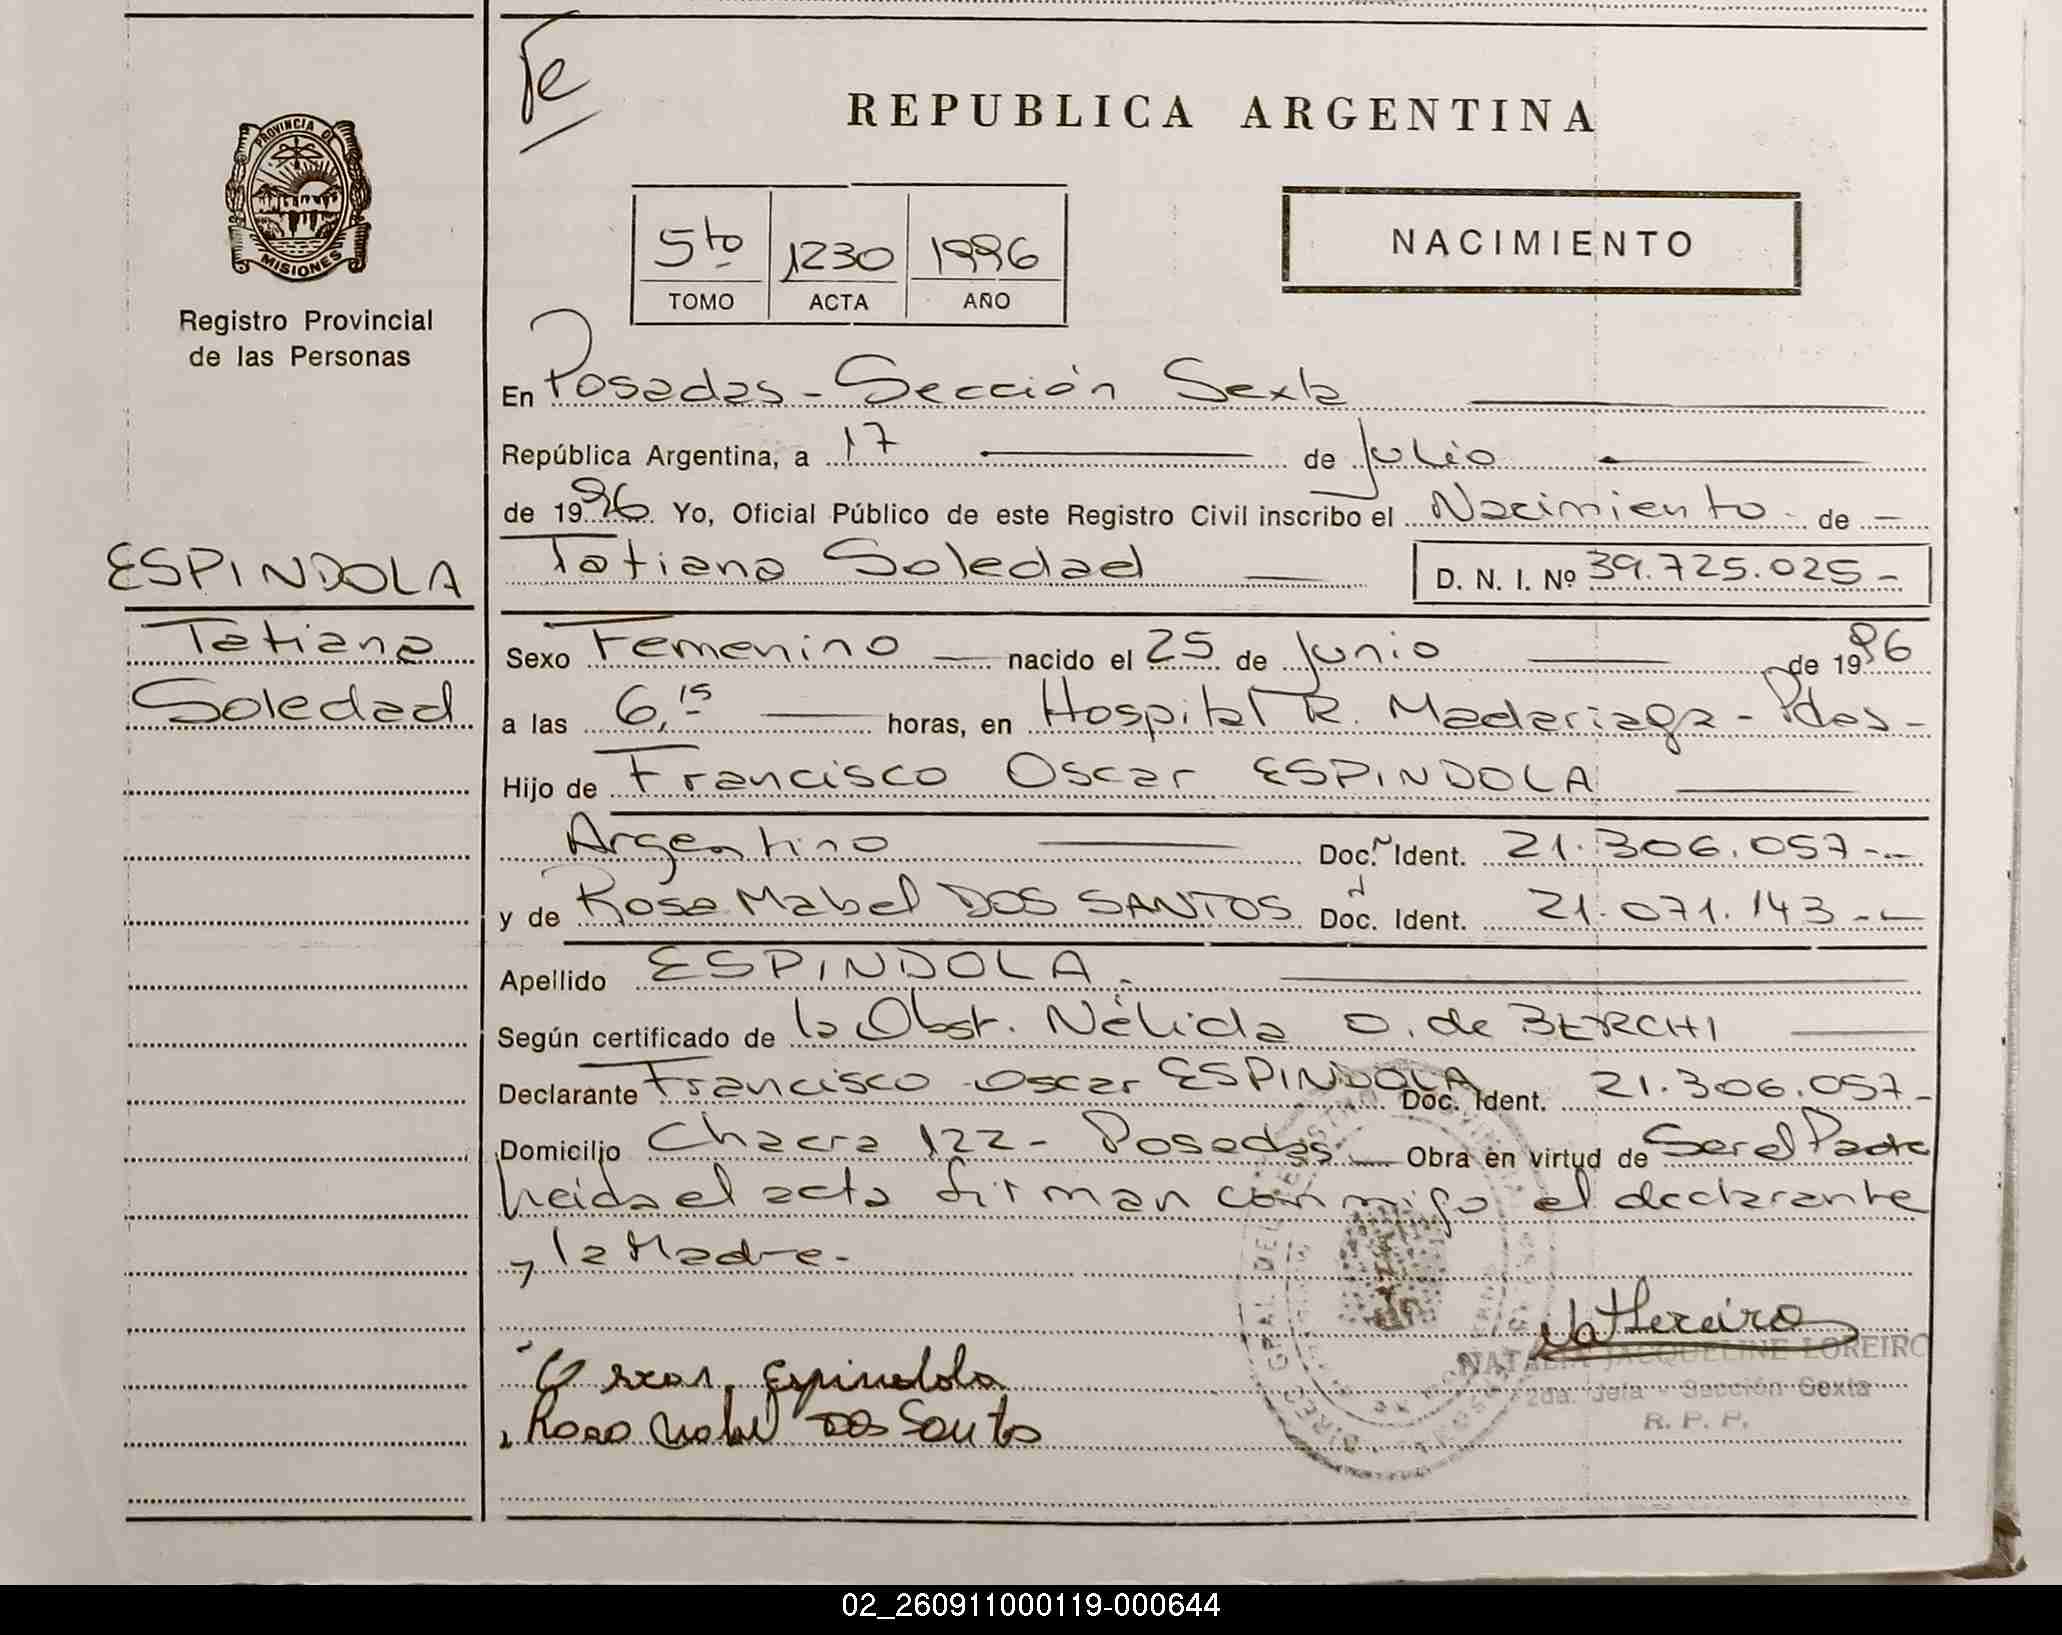 Fe
REPUBLICA ARGENTINA
PROVINCIA D
MISIONES
Registro Provincial
de las Personas
5to 1230 1996
TOMO ACTA AÑO
NACIMIENTO
En Posadas - Sección Sexta
República Argentina, a 17 de Julio
de 1996 Yo, Oficial Público de este Registro Civil inscribo el Nacimiento de
Tatiana Soledad D. N. I. Nº 39.725.025-
ESPINDOLA
Tatiana
Soledad
Sexo Femenino nacido el 25 de Junio de 1996
a las 6,15 horas, en Hospital R. Madariaga - Pdas -
Hijo de Francisco Oscar ESPINDOLA
Argentino Doc. Ident. 21.306.057--
y de Rosa Mabel DOS SANTOS Doc. Ident. 21.071.143--
Apellido ESPINDOLA.
Según certificado de la Obst. Nélida O. de BERCHI
Declarante Francisco Oscar ESPINDOLA Doc. Ident. 21.306.057-
Domicilio Chacra 122 - Posadas Obra en virtud de Ser el Padre
Leida el acta firman conmigo el declarante
y la Madre-
Oscar Espindola
Rosa Mabel Dos Santos
NATALIA JACQUELINE LOREIRO
2da. Jefa - Sección Sexta
R. P. P.
02_260911000119-000644